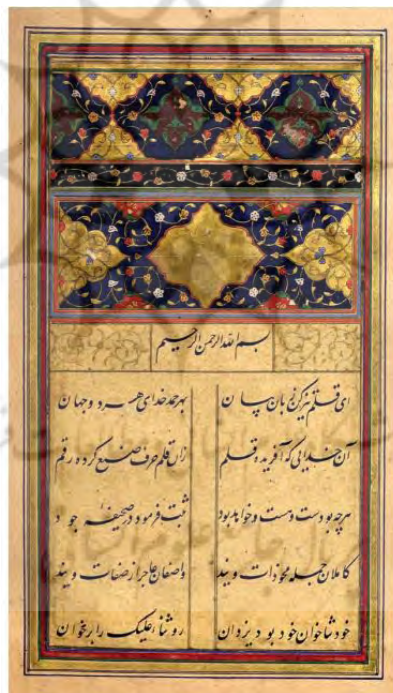 بسم الله الرحمن الرحیم
ای قلم تیز کن زبان بیان بهر حمد خدای هر دو جهان
آن خدایی که آفریده قلم زان قلم حرف صنع کرده رقم
هر چه بودست و هست و خواهد بود ثبت فرمود در صحیفهٔ جود
کاملان جمله محو ذات ویند واصفان عاجز از صفات ویند
خود ثناخوان خود بود یزدان رو ثناءً علیک را برخوان